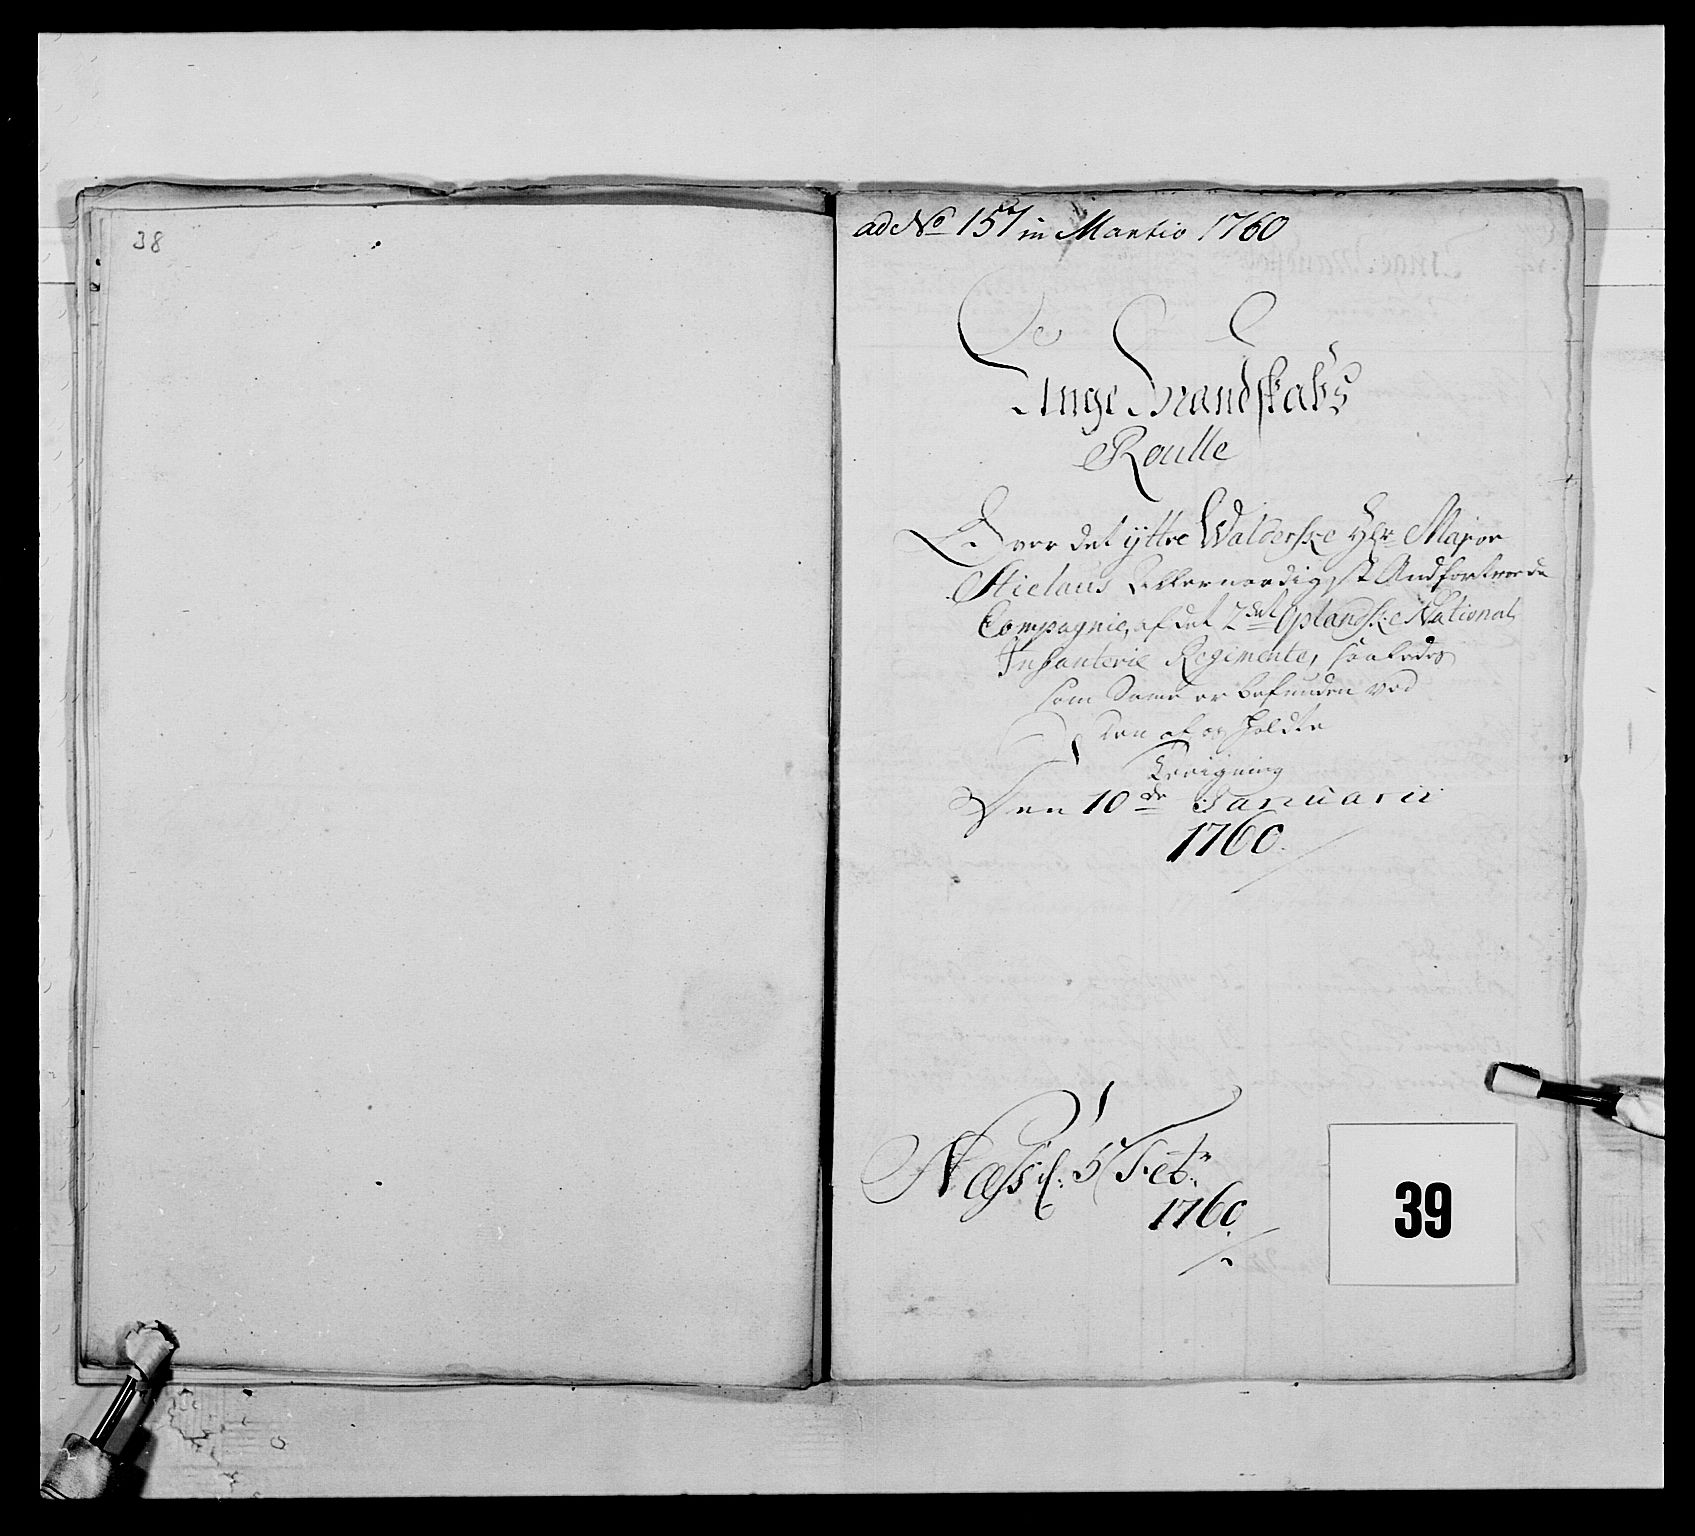 38
ad No 157 in Martio 1760
De
Unge Mandskabs
Roulle
Over det yttre Walderske Hr Major
Niclaus allernaadigst Andfortroede
Compagnie, af det 2det Oplandske National
Infanterie Regimente, saaledes
som Samme er befunden ved
den holdte
Den 10de Januarii
1760.
Næss d: 5 Febr:
1760
39